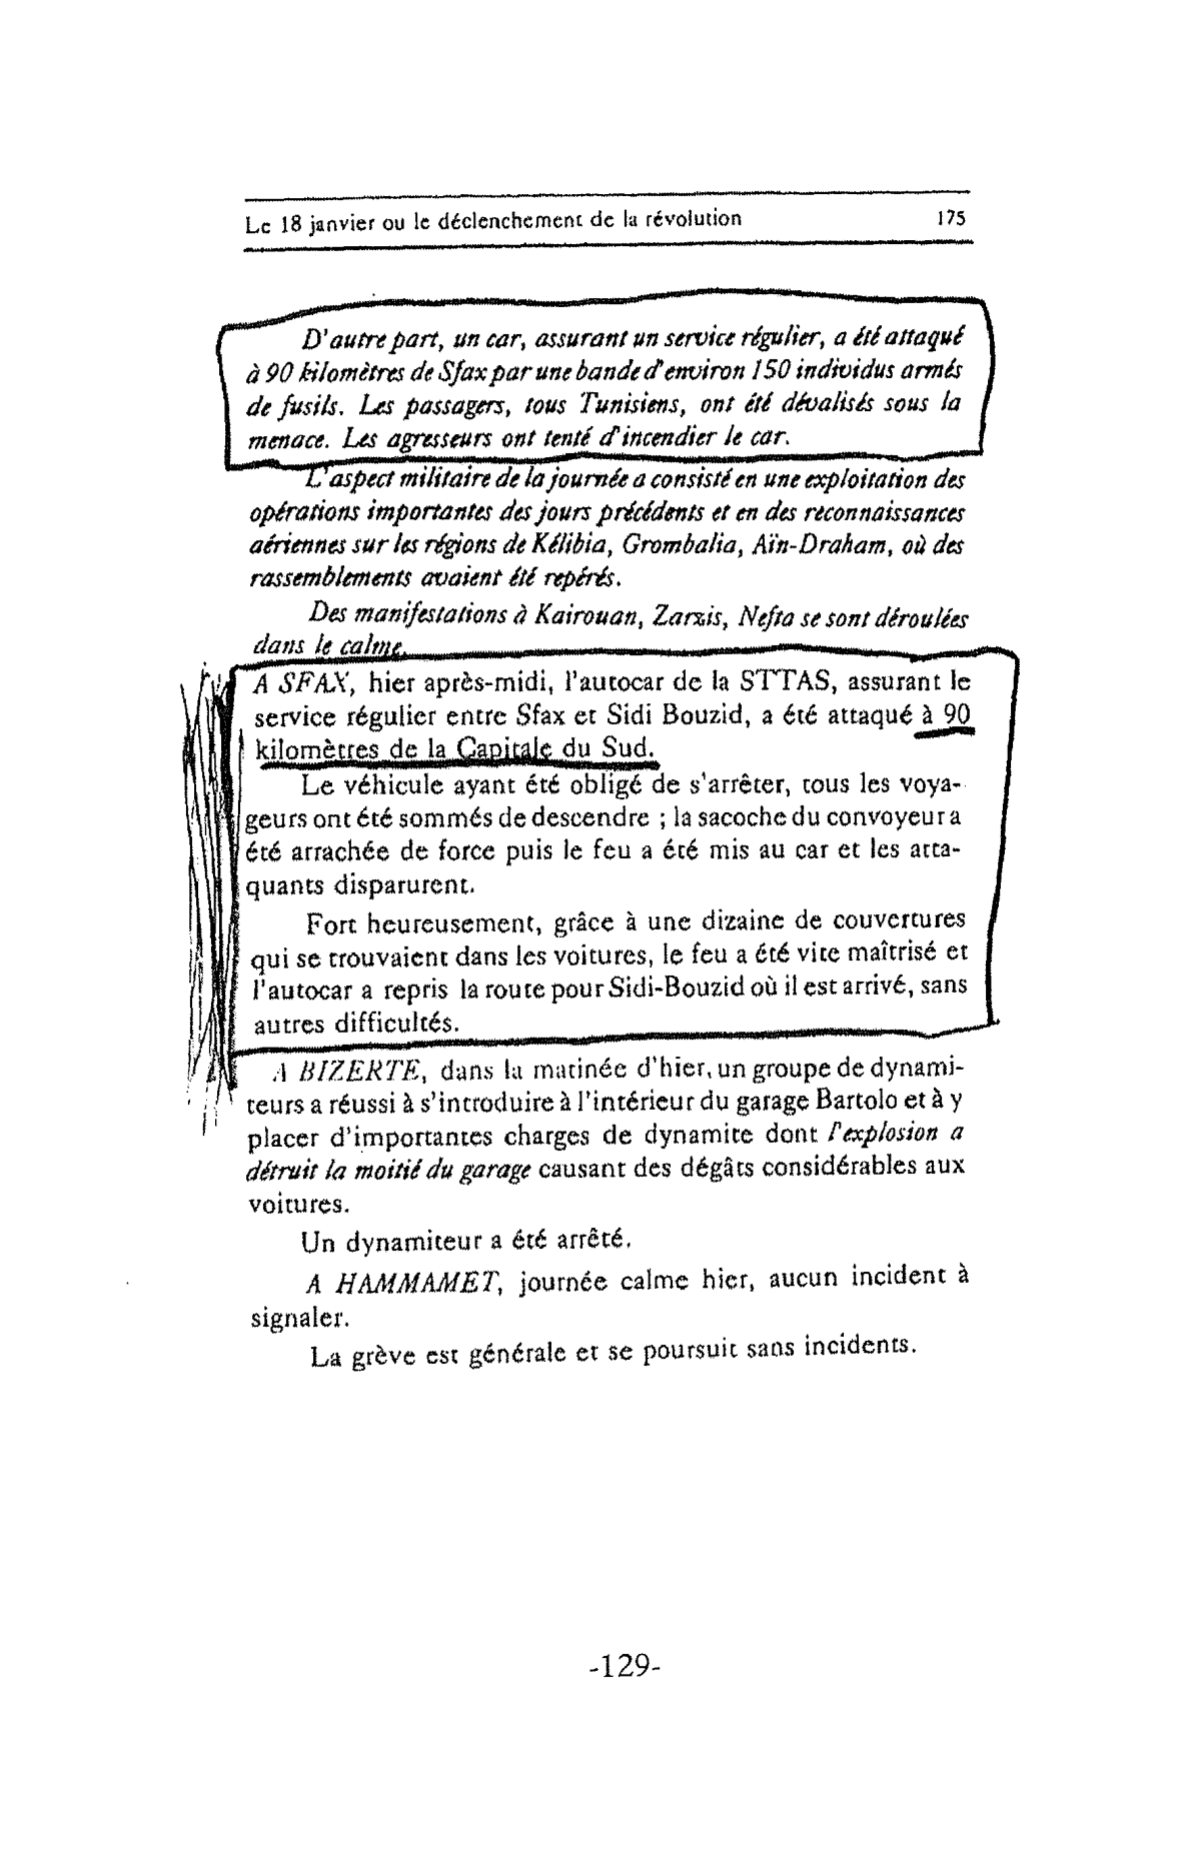 Le 18 janvier ou le déclenchement de la révolution 175
D'autre part, un car, assurant un service régulier, a été attaqué
à 90 kilomètres de Sfax par une bande d'environ 150 individus armés
de fusils. Les passagers, tous Tunisiens, ont été dévalisés sous la
menace. Les agresseurs ont tenté d'incendier le car.
L'aspect militaire de la journée a consisté en une exploitation des
opérations importantes des jours précédents et en des reconnaissances
aériennes sur les régions de Kélibia, Grombalia, Aïn-Draham, où des
rassemblements avaient été repérés.
Des manifestations à Kairouan, Zarzis, Nefta se sont déroulées
dans le calme.
A SFAX, hier après-midi, l'autocar de la STTAS, assurant le
service régulier entre Sfax et Sidi Bouzid, a été attaqué à 90
kilomètres de la Capitale du Sud.
Le véhicule ayant été obligé de s'arrêter, tous les voya-
geurs ont été sommés de descendre ; la sacoche du convoyeur a
été arrachée de force puis le feu a été mis au car et les atta-
quants disparurent.
Fort heureusement, grâce à une dizaine de couvertures
qui se trouvaient dans les voitures, le feu a été vite maîtrisé et
l'autocar a repris la route pour Sidi-Bouzid où il est arrivé, sans
autres difficultés.
A BIZERTE, dans la matinée d'hier, un groupe de dynami-
teurs a réussi à s'introduire à l'intérieur du garage Bartolo et à y
placer d'importantes charges de dynamite dont l'explosion a
détruit la moitié du garage causant des dégâts considérables aux
voitures.
Un dynamiteur a été arrêté.
A HAMMAMET, journée calme hier, aucun incident à
signaler.
La grève est générale et se poursuit sans incidents.
-129-